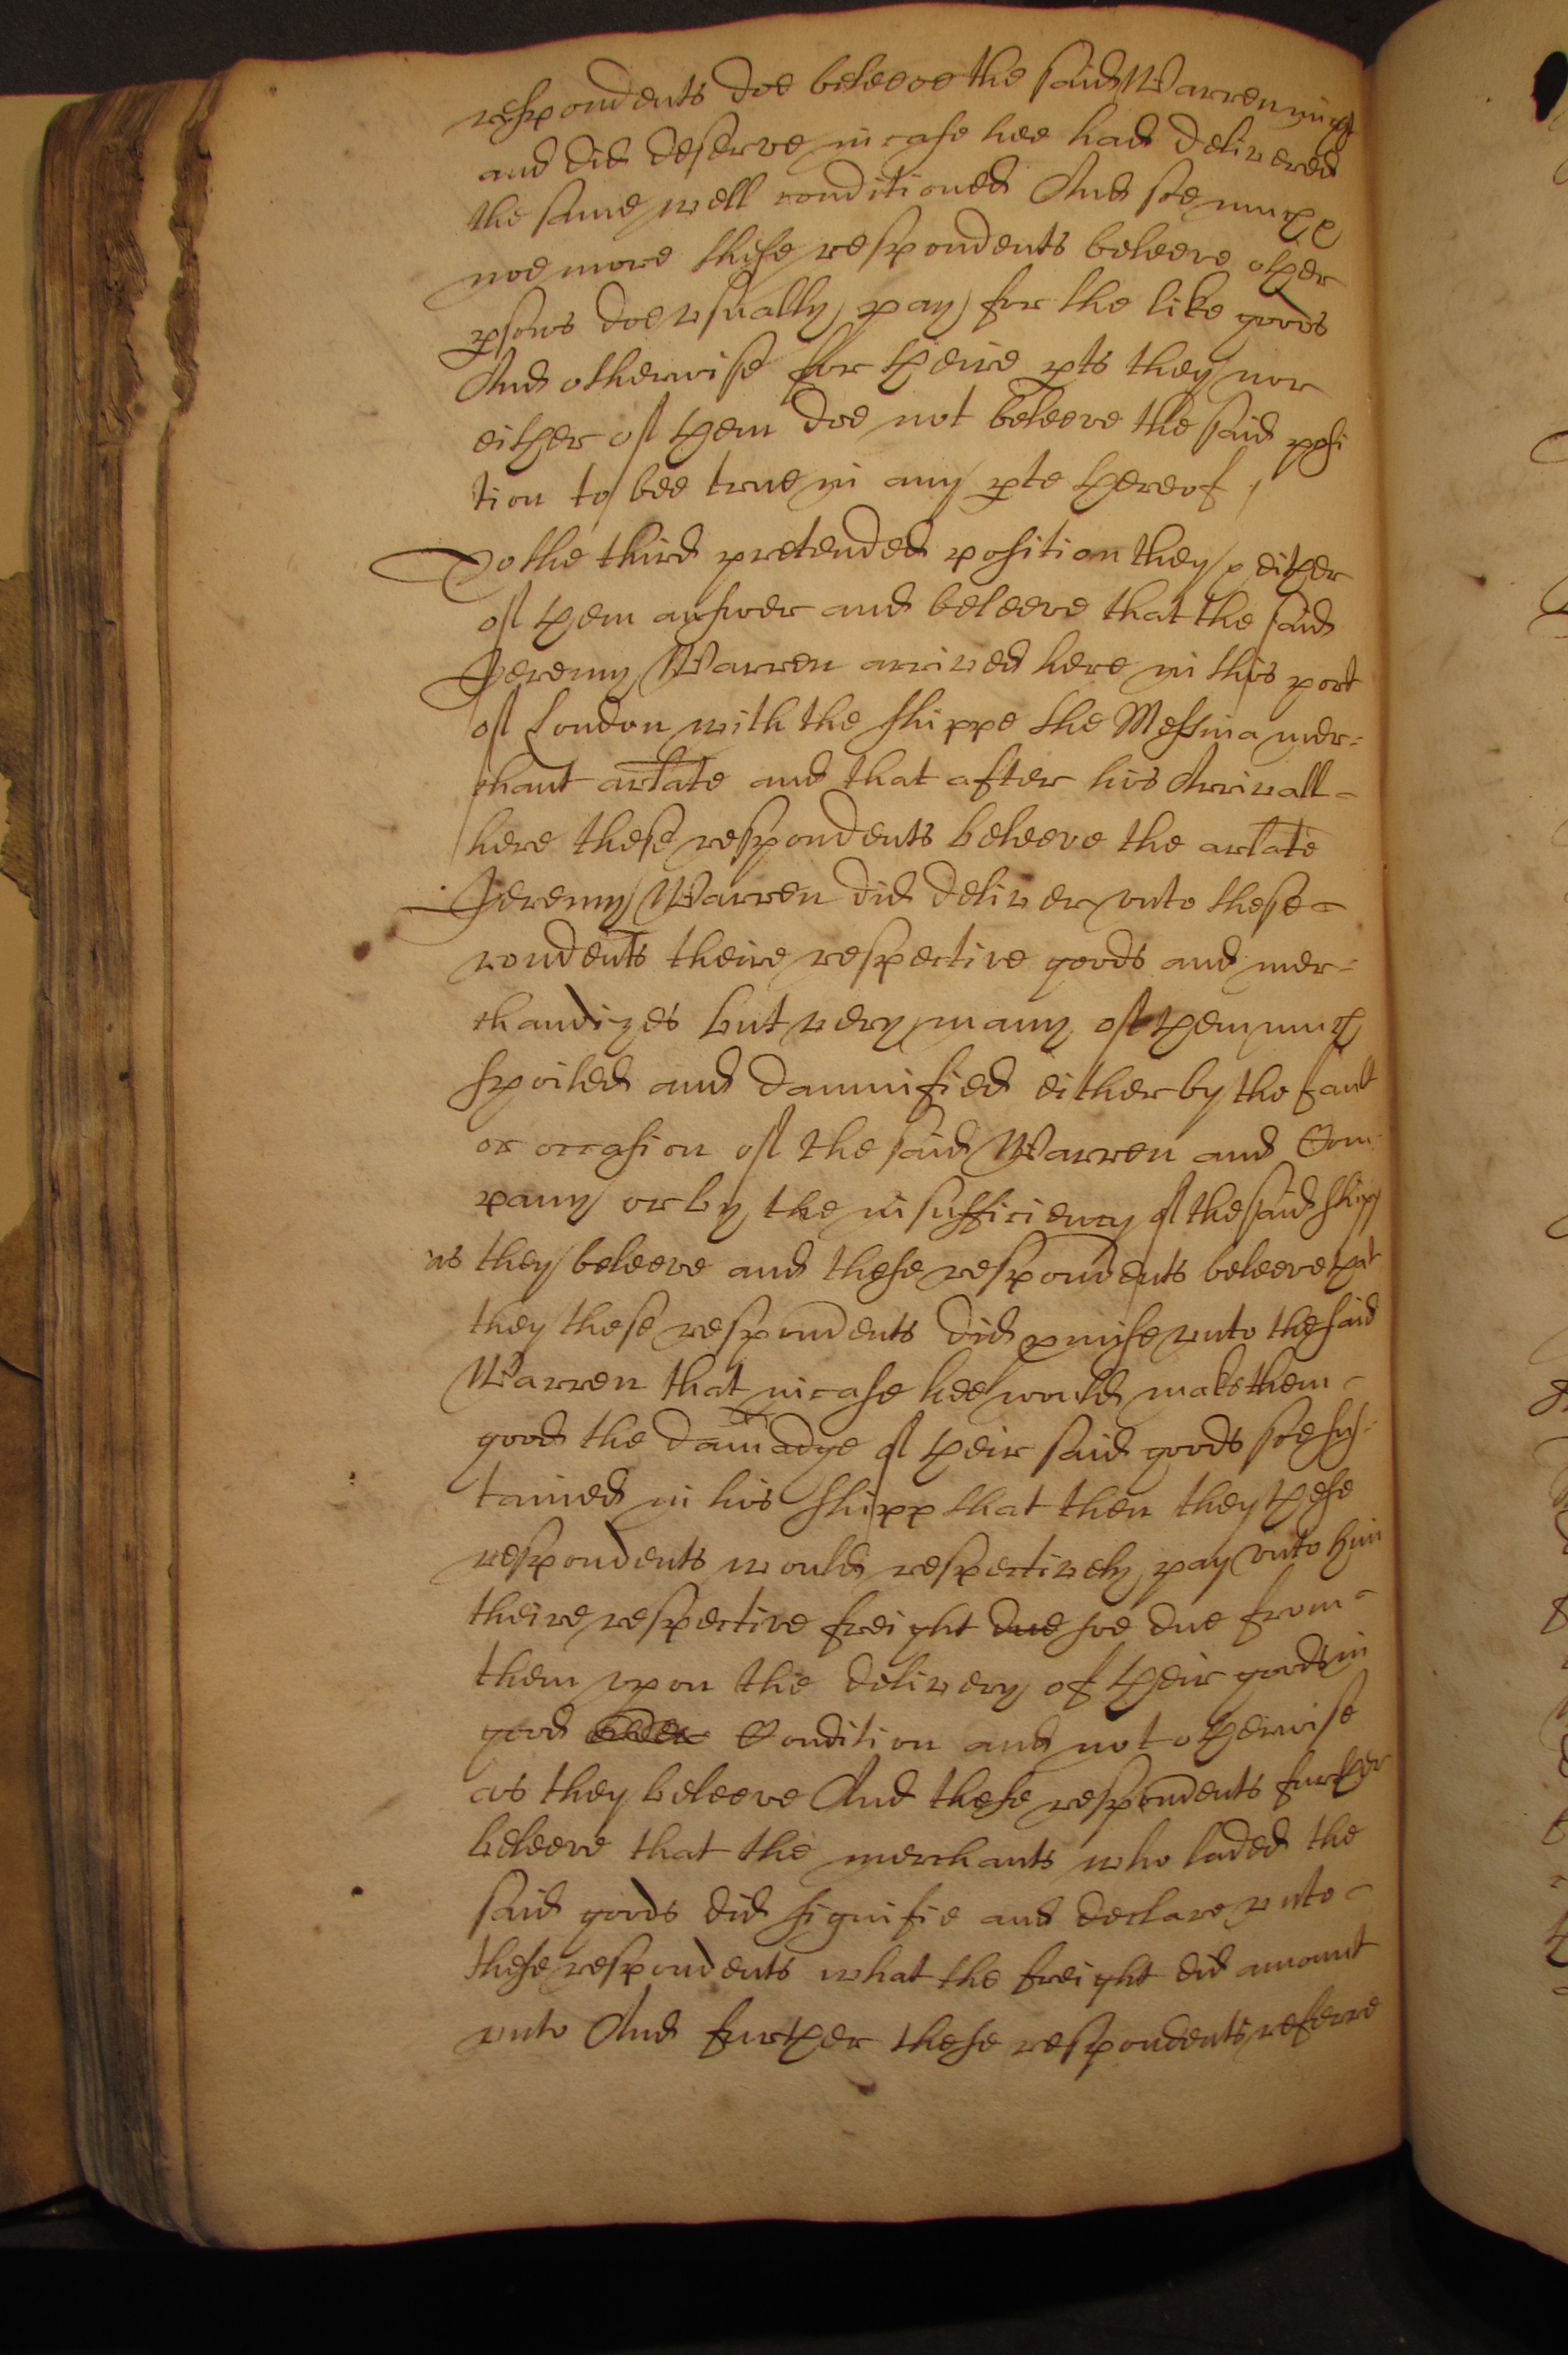 respondents doe beleeve the said Warren might
and did deserve in case hee had delivered
the same well conditioned And soe much &
noe more these respondents beleeve other
psons doe usually pay for the like goods
And otherwise for theire pts they nor
either of them doe not beleeve the said posi
tion to bee true in any pte thereof /
To the third pretended position they & either
of them answer and beleeve that the said
Jeremy Warren arrived here in this port
of London with the shippe the Messina mer=
chant arlate and that after his Arrivall -
here these respondents beleeve the arlate
Jeremy Warren did deliver unto these -
rondents theire respective goods and mer=
chandizes but very many of them much
spoiled and damnified either by the fault
or occasion of the said Warren and Com
pany or by the insufficiency of the said shipp
as they beleeve and these respondents beleeve that
they these respondents did pmise unto the said
Warren that in case hee would make them -
good the damadge of their said goods soe sus=
tained in his shipp that then they these
respondents would respectively pay unto him
theire respective freight due soe due from -
them upon the delivery of their goods in
good order Condition and not otherwise
as they beleeve And these respondents further
beleeve that the merchants who laded the
said goods did signifie and declare unto -
these respondents what the freight did amount
unto And further these respondents referre